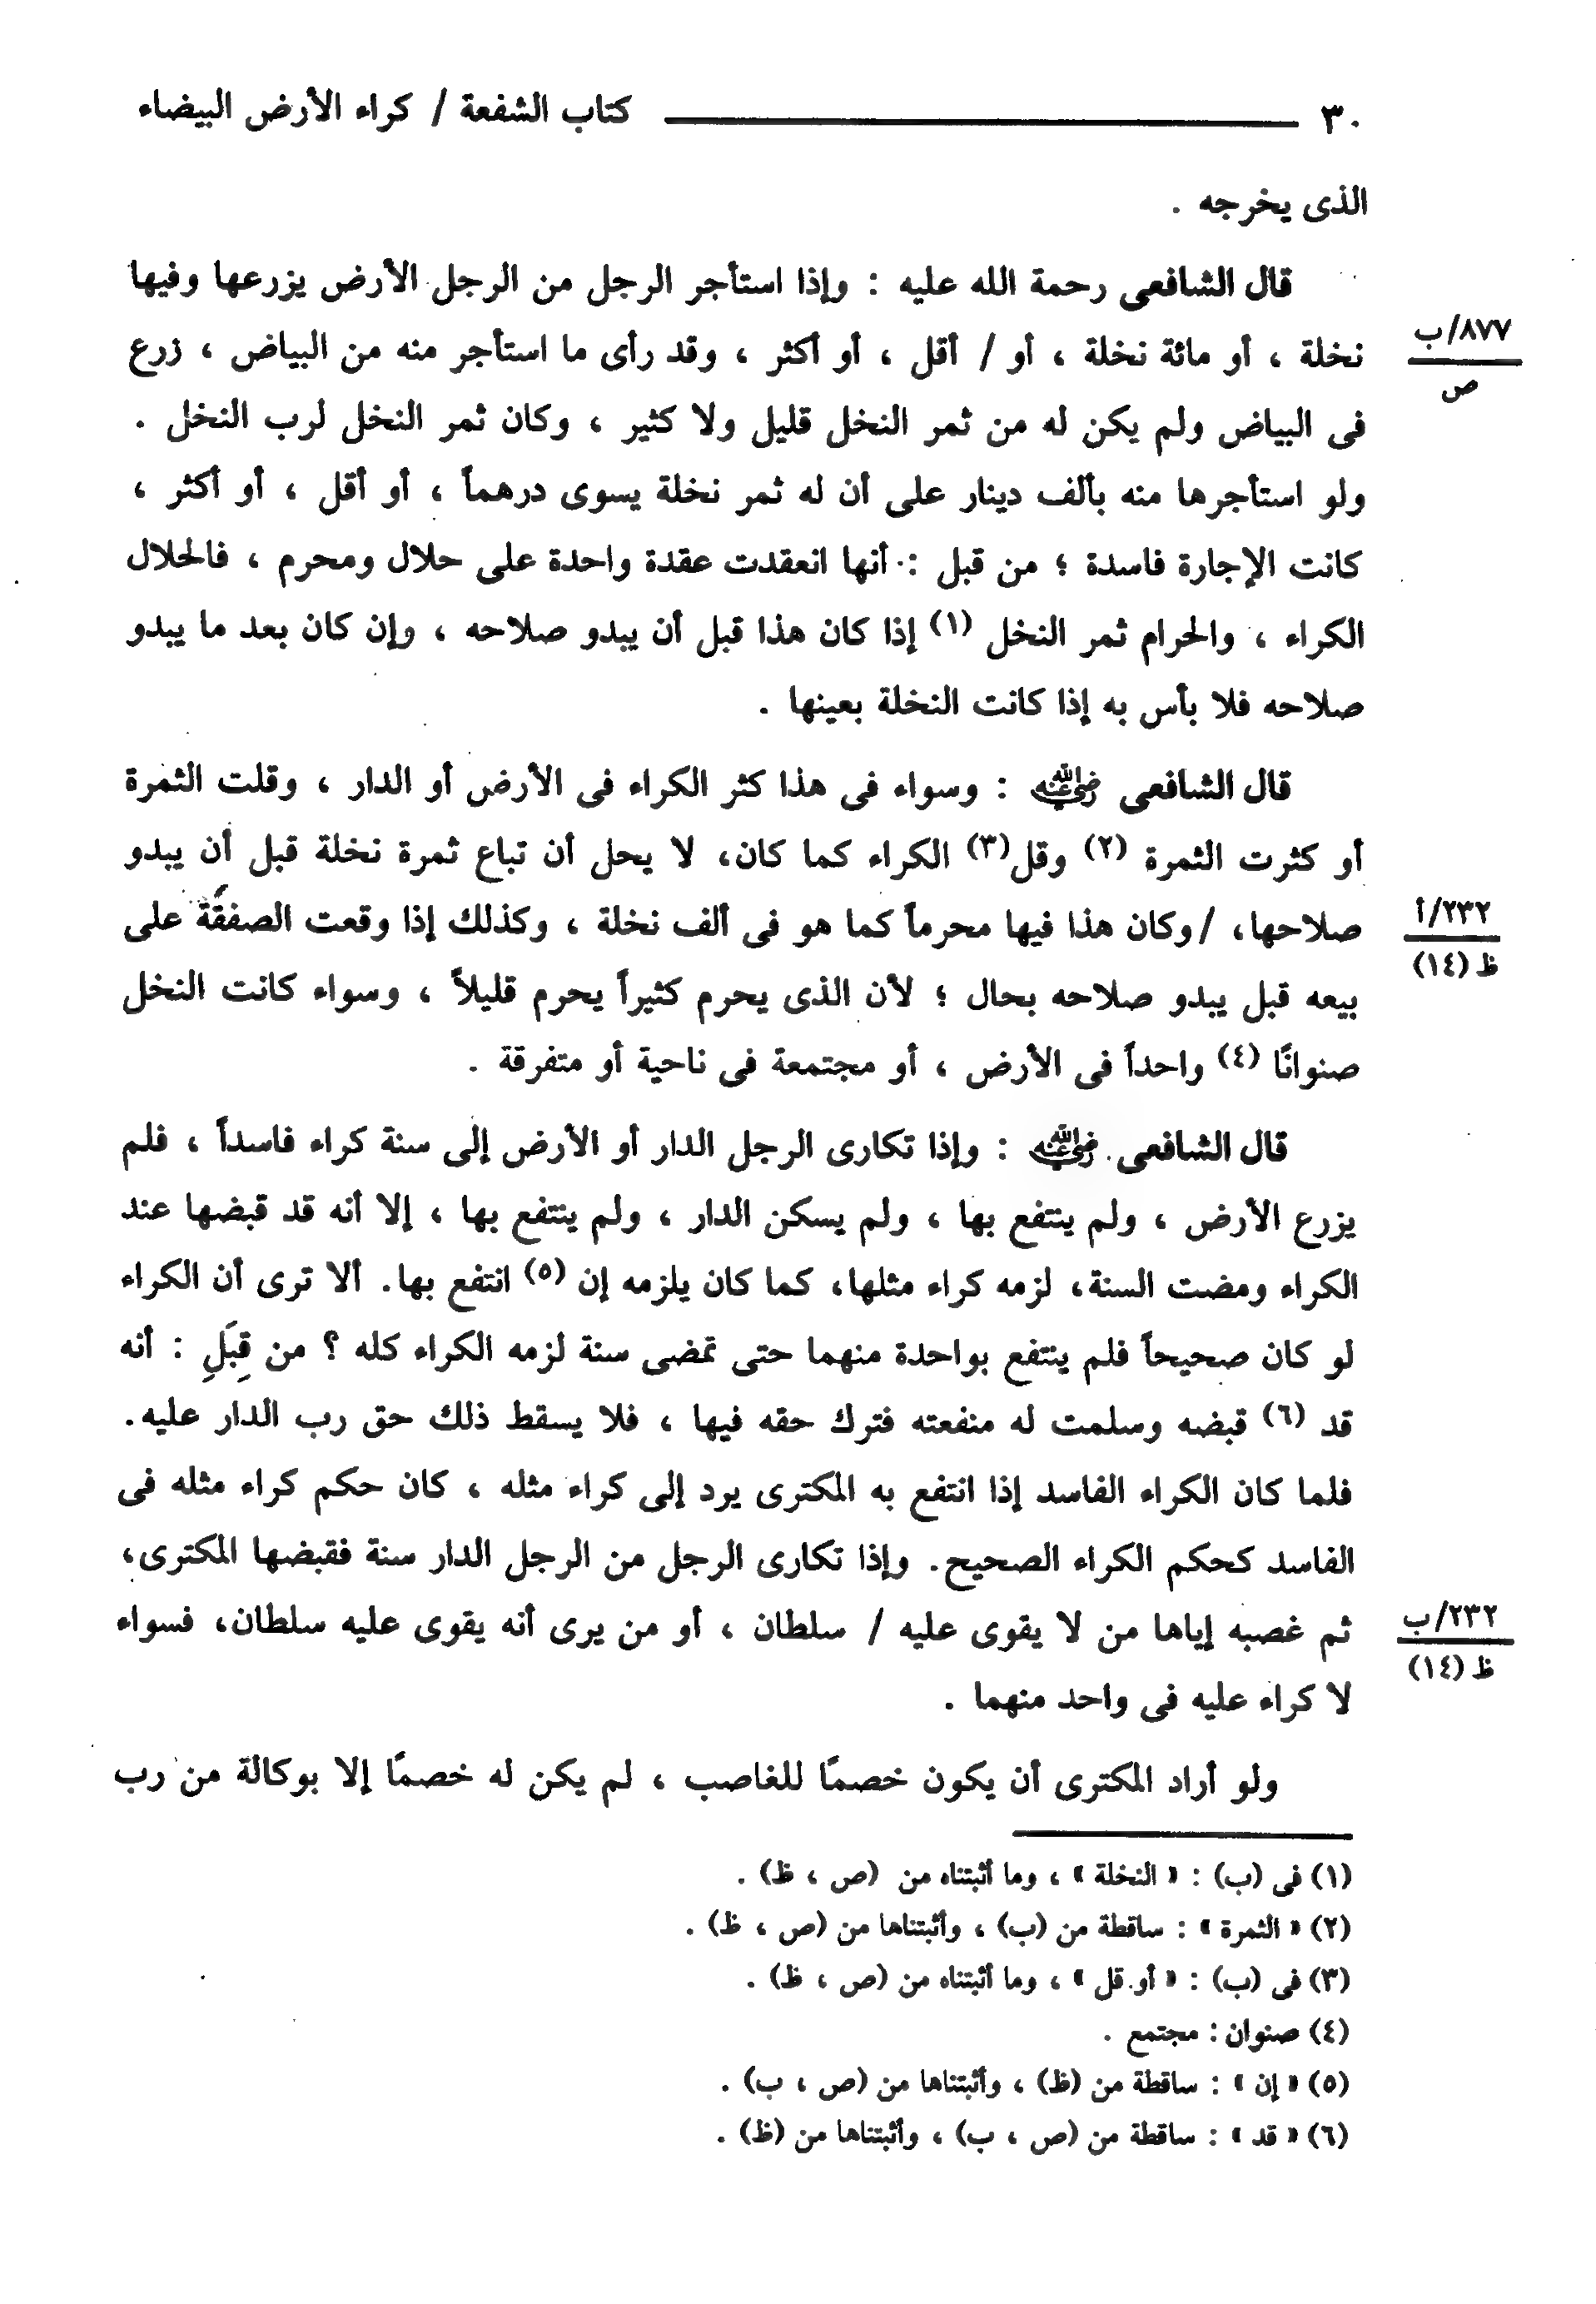 ٣٠ كتاب الشفعة / كراء الأرض البيضاء
الذى يخرجه .
قال الشافعى رحمة الله عليه : وإذا استأجر الرجل من الرجل الأرض يزرعها وفيها
٨٧٧/ب
نخلة ، أو مائة نخلة ، أو / أقل ، أو أكثر ، وقد رأى ما استأجر منه من البياض ، زرع
ص
فى البياض ولم يكن له من ثمر النخل قليل ولا كثير ، وكان ثمر النخل لرب النخل .
ولو استأجرها منه بألف دينار على أن له ثمر نخلة يسوى درهماً ، أو أقل ، أو أكثر ،
كانت الإجارة فاسدة ؛ من قبل : أنها انعقدت عقدة واحدة على حلال ومحرم ، فالحلال
الكراء ، والحرام ثمر النخل (١) إذا كان هذا قبل أن يبدو صلاحه ، وإن كان بعد ما يبدو
صلاحه فلا بأس به إذا كانت النخلة بعينها .
قال الشافعى رضي الله عنه : وسواء فى هذا كثر الكراء فى الأرض أو الدار ، وقلت الثمرة
أو كثرت الثمرة (٢) وقل(٣) الكراء كما كان، لا يحل أن تباع ثمرة نخلة قبل أن يبدو
٢٣٢/أ
صلاحها، /وكان هذا فيها محرماً كما هو فى ألف نخلة ، وكذلك إذا وقعت الصفقة على
ظ (١٤)
بيعه قبل يبدو صلاحه بحال ؛ لأن الذى يحرم كثيراً يحرم قليلاً ، وسواء كانت النخل
صنوانًا (٤) واحداً فى الأرض ، أو مجتمعة فى ناحية أو متفرقة .
قال الشافعى رضي الله عنه : وإذا تكارى الرجل الدار أو الأرض إلى سنة كراء فاسداً ، فلم
يزرع الأرض ، ولم ينتفع بها ، ولم يسكن الدار ، ولم ينتفع بها ، إلا أنه قد قبضها عند
الكراء ومضت السنة، لزمه كراء مثلها، كما كان يلزمه إن (٥) انتفع بها. ألا ترى أن الكراء
لو كان صحيحاً فلم ينتفع بواحدة منهما حتى تمضى سنة لزمه الكراء كله ؟ من قِبَلِ : أنه
قد (٦) قبضه وسلمت له منفعته فترك حقه فيها ، فلا يسقط ذلك حق رب الدار عليه.
فلما كان الكراء الفاسد إذا انتفع به المكترى يرد إلى كراء مثله ، كان حكم كراء مثله فى
الفاسد كحكم الكراء الصحيح. وإذا تكارى الرجل من الرجل الدار سنة فقبضها المكترى،
٢٣٢/ب
ثم غصبه إياها من لا يقوى عليه / سلطان ، أو من يرى أنه يقوى عليه سلطان، فسواء
ظ (١٤)
لا كراء عليه فى واحد منهما .
ولو أراد المكترى أن يكون خصمًا للغاصب ، لم يكن له خصمًا إلا بوكالة من رب
(١) فى (ب) : « النخلة » ، وما أثبتناه من (ص ، ظ) .
(٢) « الثمرة » : ساقطة من (ب) ، وأثبتناها من (ص ، ظ) .
(٣) فى (ب) : « أو قل » ، وما أثبتناه من (ص ، ظ) .
(٤) صنوان : مجتمع .
(٥) « إن » : ساقطة من (ظ) ، وأثبتناها من (ص ، ب) .
(٦) « قد » : ساقطة من (ص ، ب) ، وأثبتناها من (ظ) .